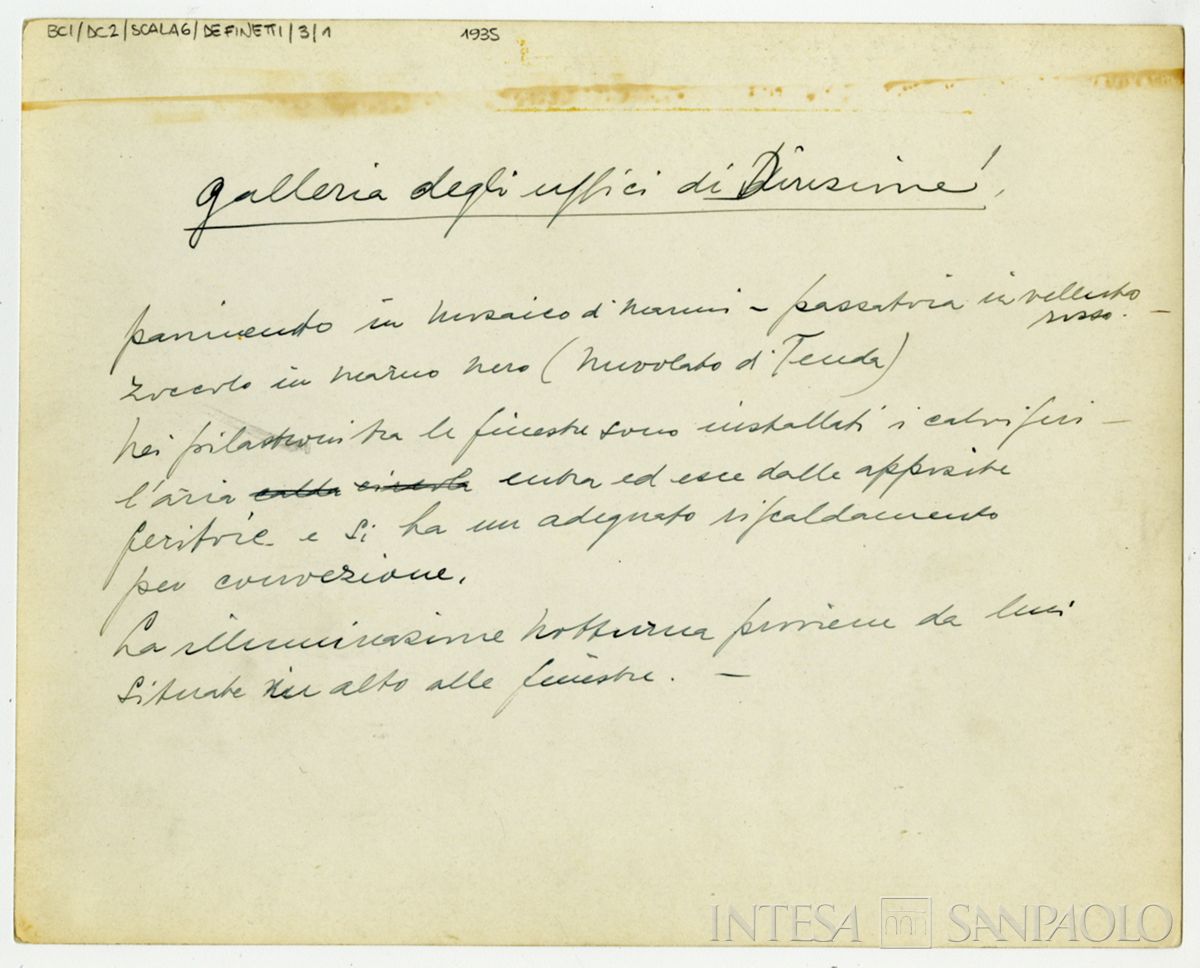 BCI/DC2/SCALA6/DEFINETTI/3/1 1935
galleria degli uffici di Direzione
pavimento in mosaico di marmi - passatoia in velluto rosso. -
zoccolo in marmo nero (nuvolato di Tenda)
nei pilastroni tra le finestre sono installati i caloriferi -
l'aria calda circola entra ed esce dalle apposite
feritoie e si ha un adeguato riscaldamento
per convezione.
La illuminazione notturna proviene da luci
situate in alto alle finestre. -
INTESA SANPAOLO